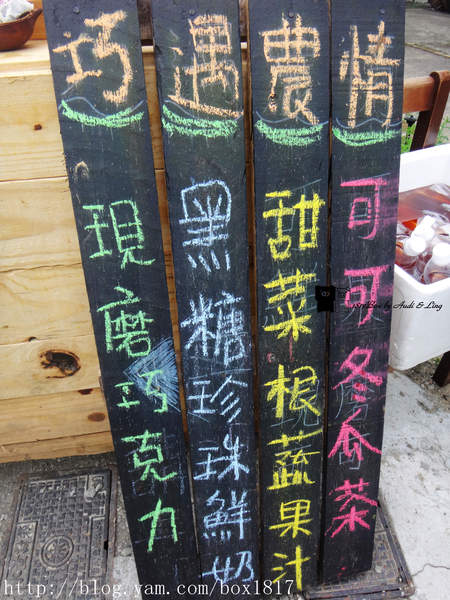 巧遇農情
現磨巧克力
黑糖珍珠鮮奶
甜菜根蔬果汁
可可冬瓜茶
by Audi & Ling
http://blog.yam.com/box1817